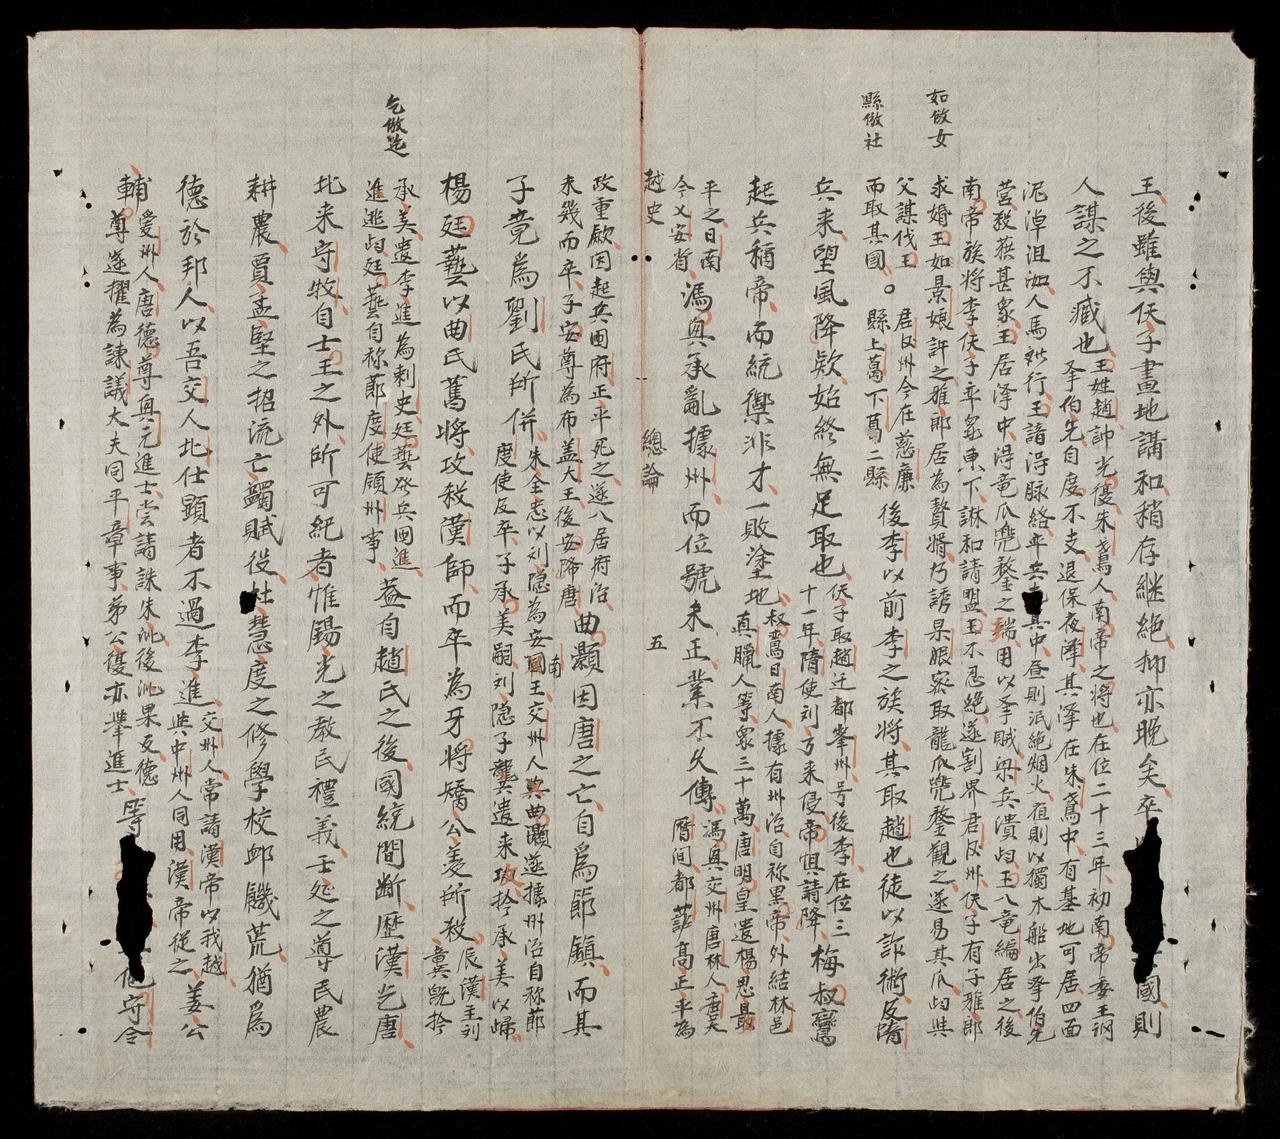 如倣女
縣倣社
王後雖與佚子畫地講和稍存継絶抑亦晚矣卒國則
人謀之不臧也
王姓趙諱光復朱鳶人南帝之將也在位二十三年初南帝委王詗
孝伯先自度不支退保夜澤其澤在朱鳶中有基地可居四面
泥淖沮洳人馬行王諳得脉絡率兵其中昼則泯絶烟火夜則以獨木船出李伯先
營殺获甚衆王居泽中得竜爪兜鍪之瑞用以李賊梁兵潰王入竜編居之後
南帝族將李佚子率衆東下諃和請盟王不忍絶遂割界君臣州佚子有子雅郎
求婚王女景娘許之雅郎居為贅壻乃誘杲娘宻取龍爪兜鍪觀之遂易其爪与
父謀伐王
而取其國。
居臣州今在慈廉
縣上葛下葛二縣
後李以前李之族將其取趙也徒以詐術反隋
兵来望風降欵始終無足取也
佚子取趙迁都峯州号後李在位三
十一年隋使刘方来侵帝惧請降
梅叔鸞
起兵稱帝而統禦非才一敗塗地
叔鸞日南人據有州治自称黒帝外結林邑
真臘人等衆三十萬唐明皇遣楊思最
平之日南
今乂安省
馮興承亂據州而位號未正業不久傳
馮興交州唐林人唐天
曆间都護髙正平為
越史 總論 五
政重歛因起兵囲府正平死之遂入居府治
未幾而卒子安尊為布盖大王後安歸唐
曲灝因唐之亡自爲節鎮而其
子竟爲劉氏所併
朱全忠以刘隐為安南国王交州人曲灝遂據州治自称節
度使及卒子承美嗣刘隐子龔遣来攻擒承美以歸
楊廷藝以曲氏舊將攻殺漢師而卒為牙將矯公羡所殺
辰漢主刘
龔既擒
承美遣李進為刺史廷藝發兵囲進
進逃歸廷藝自称節度使領州事
葢自趙氏之後國統間断歷漢乞唐
乞倣迄
北来守牧自士王之外所可紀者惟錫光之教民禮義壬延之導民農
耕農賈孟堅之招流亡蠲賦役杜慧度之修學校卹饑荒猶爲
德於邦人以吾交人北仕顕者不過李進
交州人常請漢帝以我越
與中州人同用漢帝從之
姜公
輔
愛州人唐德尊興元進士尝請誅朱泚後泚果反德
尊遂擢為諫議大夫同平章事弟公復亦舉進士
等他守令